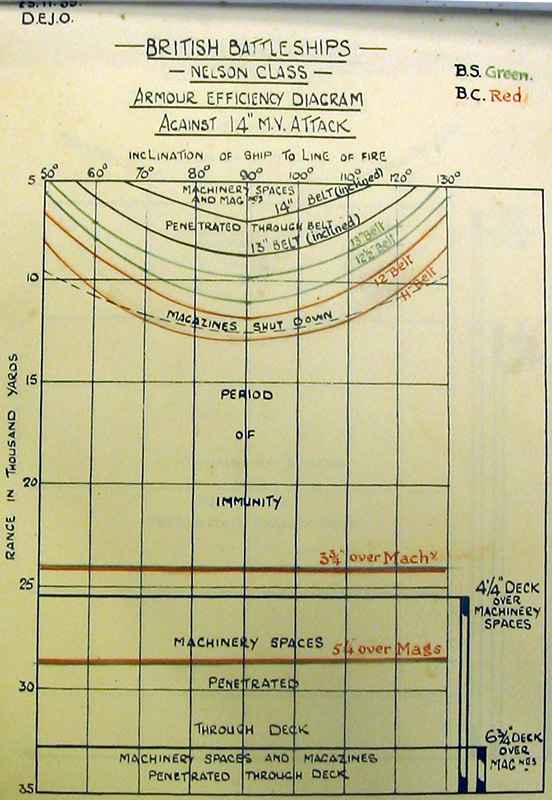 D.E.J.O.
BRITISH BATTLESHIPS
NELSON CLASS
ARMOUR EFFICIENCY DIAGRAM
AGAINST 14" M.V. ATTACK
B.S. Green.
B.C. Red.
INCLINATION OF SHIP TO LINE OF FIRE
50° 60° 70° 80° 90° 100° 110° 120° 130°
5
MACHINERY SPACES
AND MAGNES
14" BELT (inclined)
PENETRATED THROUGH BELT
13" BELT (inclined)
13" Belt
12½" Belt
12" Belt
11" Belt
10
MAGAZINES SHUT DOWN
15
PERIOD
OF
20
IMMUNITY
RANGE IN THOUSAND YARDS
3¾" over Machy
25
4¼" DECK
OVER
MACHINERY
SPACES
MACHINERY SPACES
5¼ over Mags
30
PENETRATED
THROUGH DECK
6¾" DECK
OVER
MAGNES
MACHINERY SPACES AND MAGAZINES
PENETRATED THROUGH DECK
35